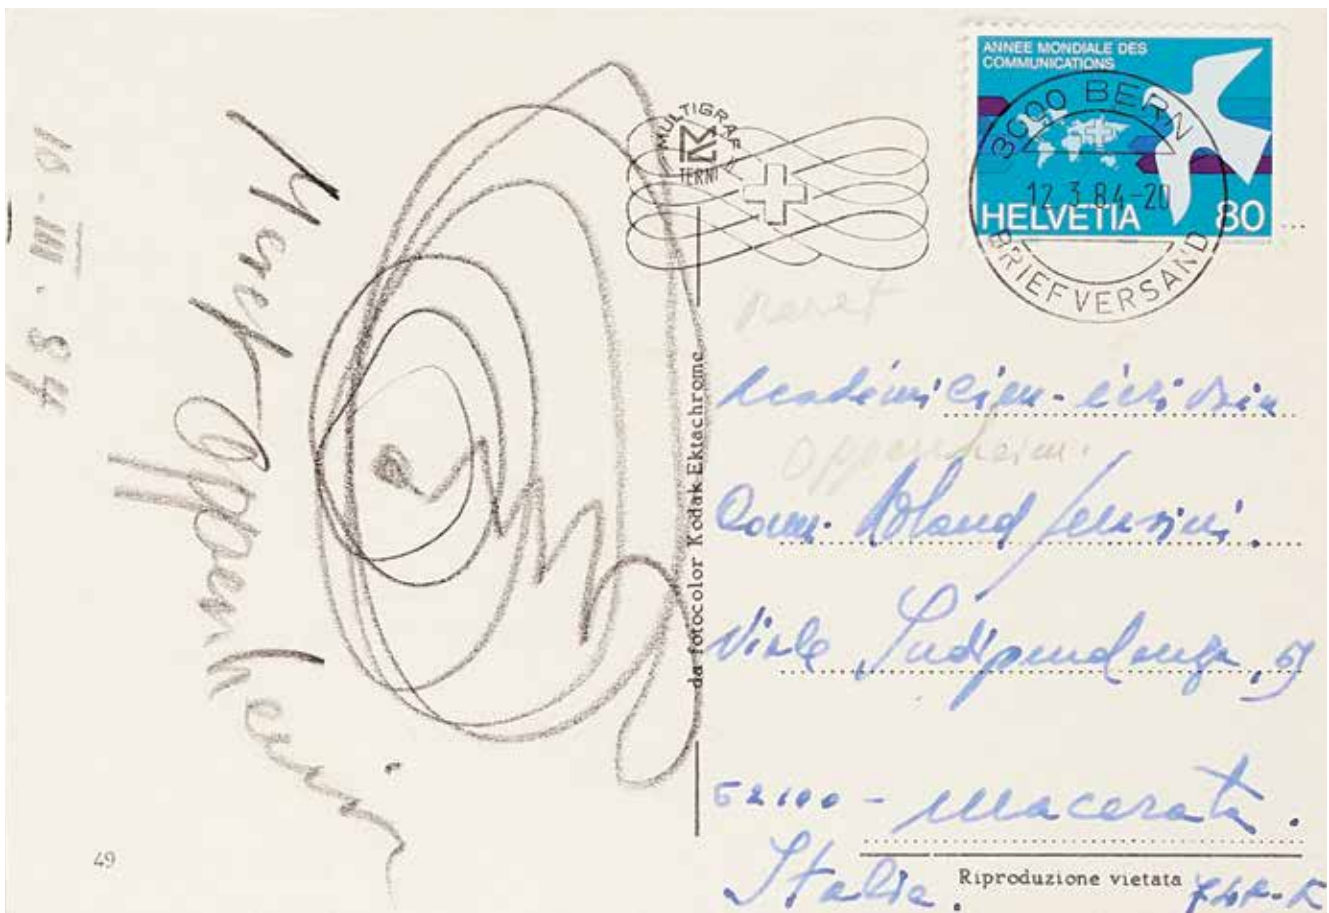 10 - III - 84
Meret Oppenheim
49
MULTIGRAF
TERNI
da fotocolor Kodak Ektachrome
ANNEE MONDIALE DES
COMMUNICATIONS
HELVETIA 80
3000 BERN
12.3.84-20
BRIEFVERSAND
meret
Académicien-écrivain
Oppenheim.
Comm. Roland
Viale Indipendenza,
62100 - Macerata.
Italia.
Riproduzione vietata